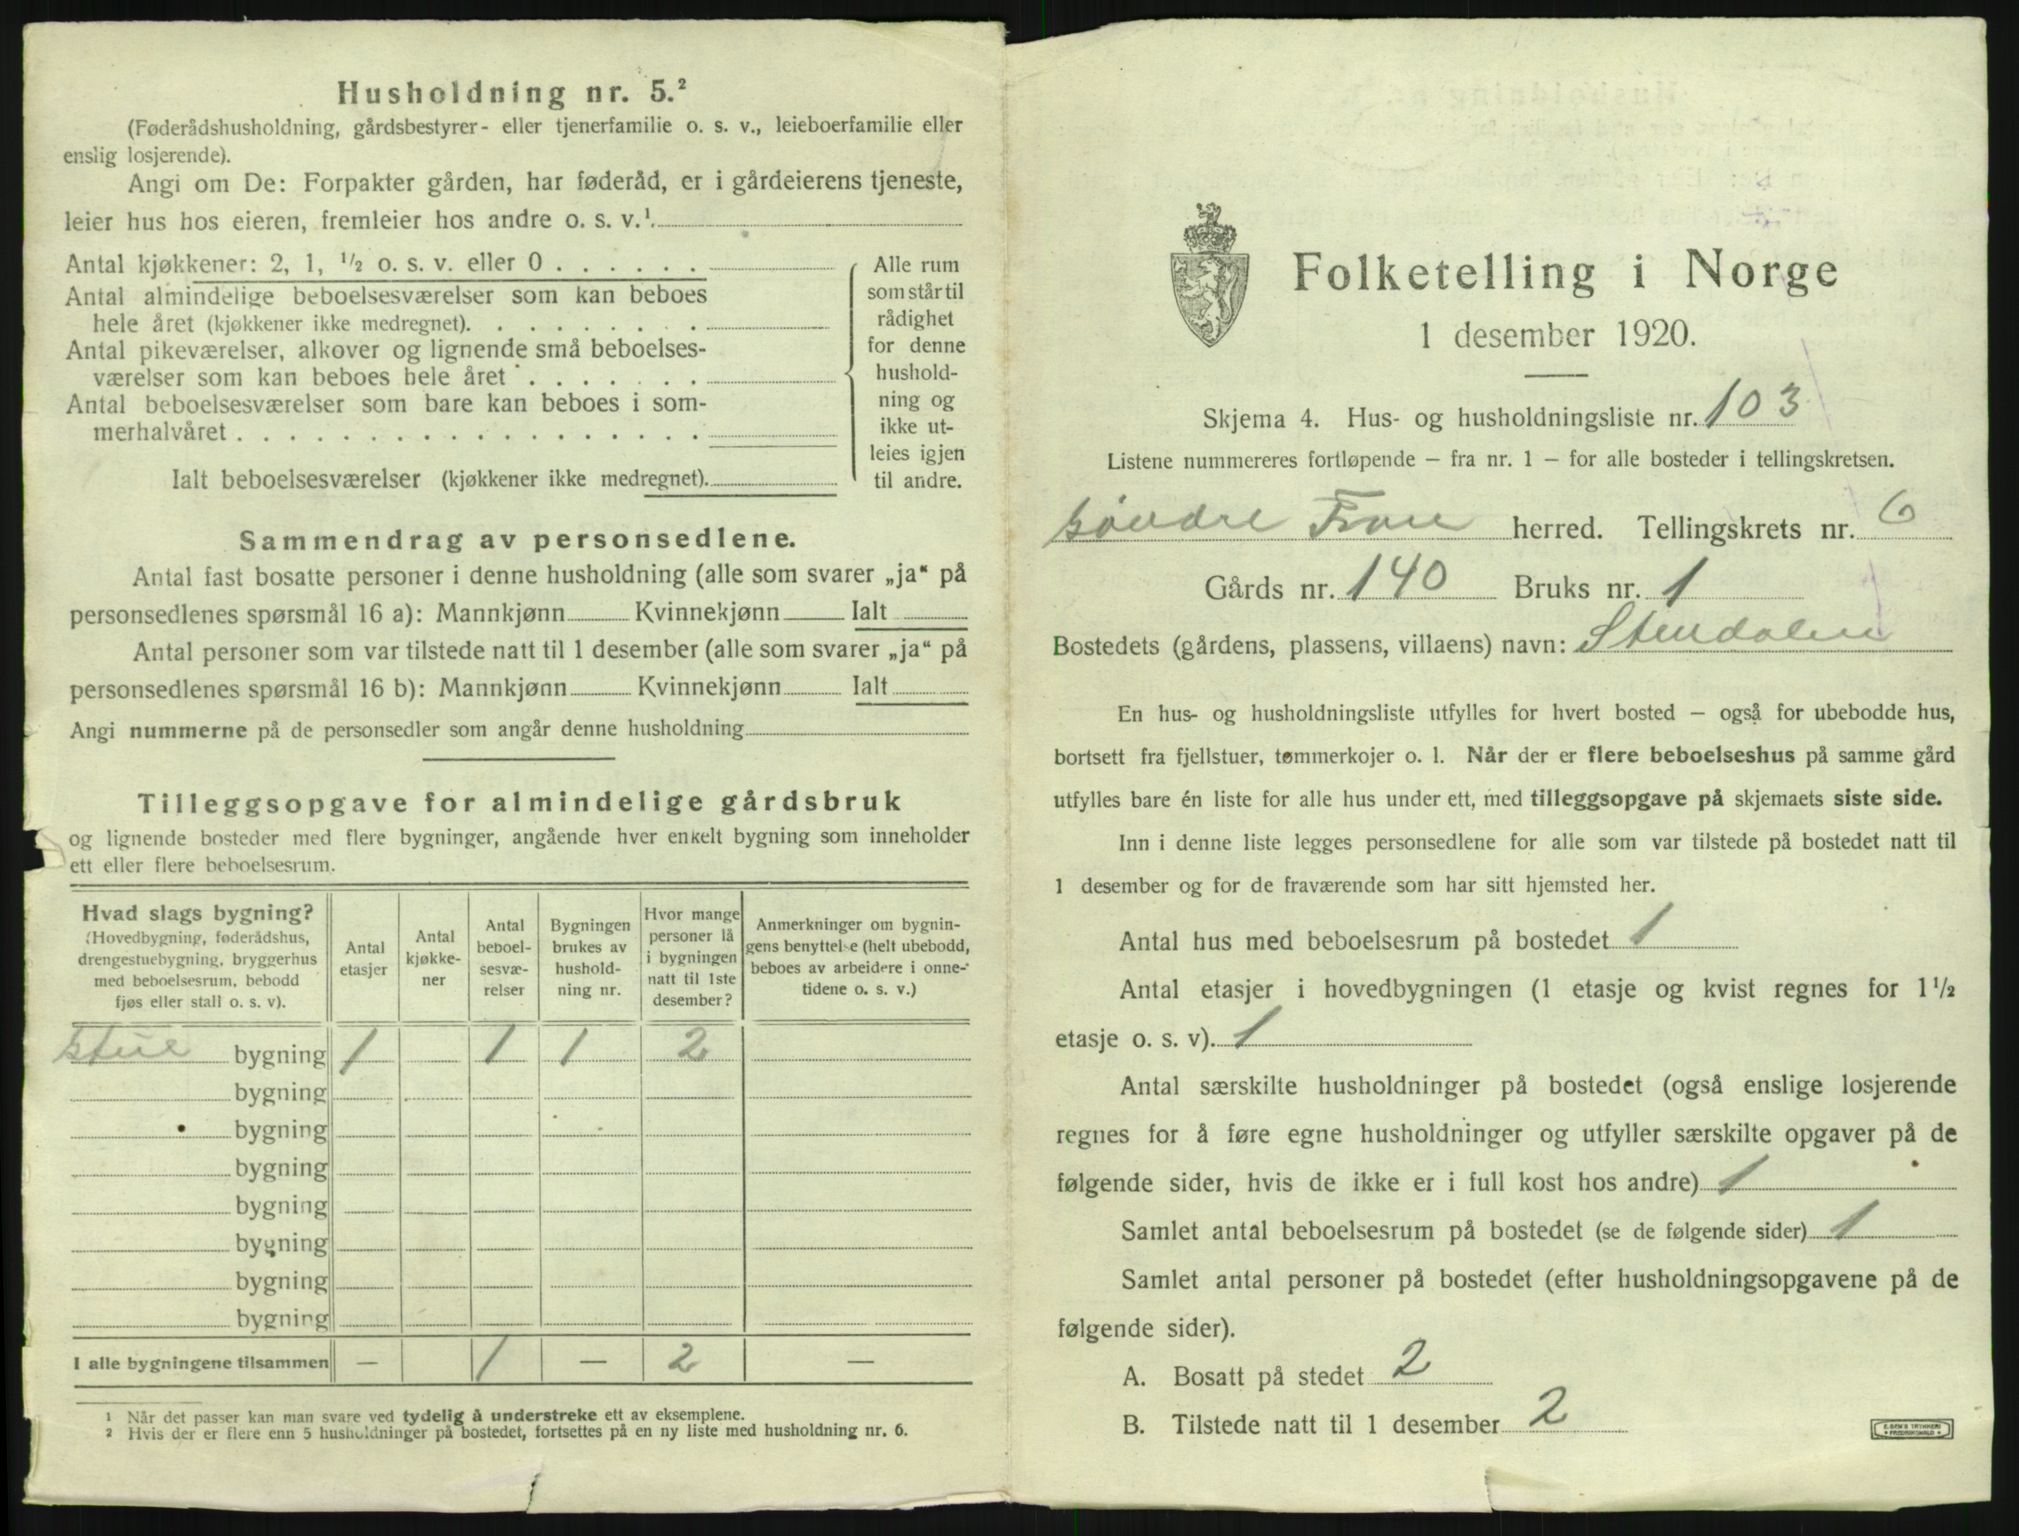 Husholdning nr. 5.²
(Føderådshusholdning, gårdsbestyrer- eller tjenerfamilie o. s. v., leieboerfamilie eller
enslig losjerende).
Angi om De: Forpakter gården, har føderåd, er i gårdeierens tjeneste,
leier hus hos eieren, fremleier hos andre o. s. v.¹
Antal kjøkkener: 2, 1, ½ o. s. v. eller 0 . . . . . .
Antal almindelige beboelsesværelser som kan beboes
hele året (kjøkkener ikke medregnet). . . . . . . .
Antal pikeværelser, alkover og lignende små beboelses-
værelser som kan beboes hele året . . . . . . .
Antal beboelsesværelser som bare kan beboes i som-
merhalvåret . . . . . . . . . . . . . . . . . .
Ialt beboelsesværelser (kjøkkener ikke medregnet).
Alle rum
som står til
rådighet
for denne
hushold-
ning og
ikke ut-
leies igjen
til andre.
Sammendrag av personsedlene.
Antal fast bosatte personer i denne husholdning (alle som svarer „ja“ på
personsedlenes spørsmål 16 a): Mannkjønn Kvinnekjønn Ialt
Antal personer som var tilstede natt til 1 desember (alle som svarer „ja“ på
personsedlenes spørsmål 16 b): Mannkjønn Kvinnekjønn Ialt
Angi nummerne på de personsedler som angår denne husholdning
Tilleggsopgave for almindelige gårdsbruk
og lignende bosteder med flere bygninger, angående hver enkelt bygning som inneholder
ett eller flere beboelsesrum.
Hvad slags bygning?
(Hovedbygning, føderådshus,
drengestuebygning, bryggerhus
med beboelsesrum, bebodd
fjøs eller stall o. s. v).
Antal
etasjer
Antal
kjøkke-
ner
Antal
beboel-
sesvæ-
relser
Bygningen
brukes av
hushold-
ning nr.
Hvor mange
personer lå
i bygningen
natt til 1ste
desember?
Anmerkninger om bygnin-
gens benyttelse (helt ubebodd,
beboes av arbeidere i onne-
tidene o. s. v.)
Stue bygning 1 1 1 2
bygning
bygning
bygning
bygning
bygning
bygning
bygning
I alle bygningene tilsammen — 1 — 2 —
¹ Når det passer kan man svare ved tydelig å understreke ett av eksemplene.
² Hvis der er flere enn 5 husholdninger på bostedet, fortsettes på en ny liste med husholdning nr. 6.
Folketelling i Norge
1 desember 1920.
Skjema 4. Hus- og husholdningsliste nr. 103
Listene nummereres fortløpende – fra nr. 1 – for alle bosteder i tellingskretsen.
Søndre Fron herred. Tellingskrets nr. 6
Gårds nr. 140 Bruks nr. 1
Bostedets (gårdens, plassens, villaens) navn: Stendalen
En hus- og husholdningsliste utfylles for hvert bosted – også for ubebodde hus,
bortsett fra fjellstuer, tømmerkojer o. l. Når der er flere beboelseshus på samme gård
utfylles bare én liste for alle hus under ett, med tilleggsopgave på skjemaets siste side.
Inn i denne liste legges personsedlene for alle som var tilstede på bostedet natt til
1 desember og for de fraværende som har sitt hjemsted her.
Antal hus med beboelsesrum på bostedet 1
Antal etasjer i hovedbygningen (1 etasje og kvist regnes for 1½
etasje o. s. v). 1
Antal særskilte husholdninger på bostedet (også enslige losjerende
regnes for å føre egne husholdninger og utfyller særskilte opgaver på de
følgende sider, hvis de ikke er i full kost hos andre) 1
Samlet antal beboelsesrum på bostedet (se de følgende sider) 1
Samlet antal personer på bostedet (efter husholdningsopgavene på de
følgende sider).
A. Bosatt på stedet 2
B. Tilstede natt til 1 desember 2